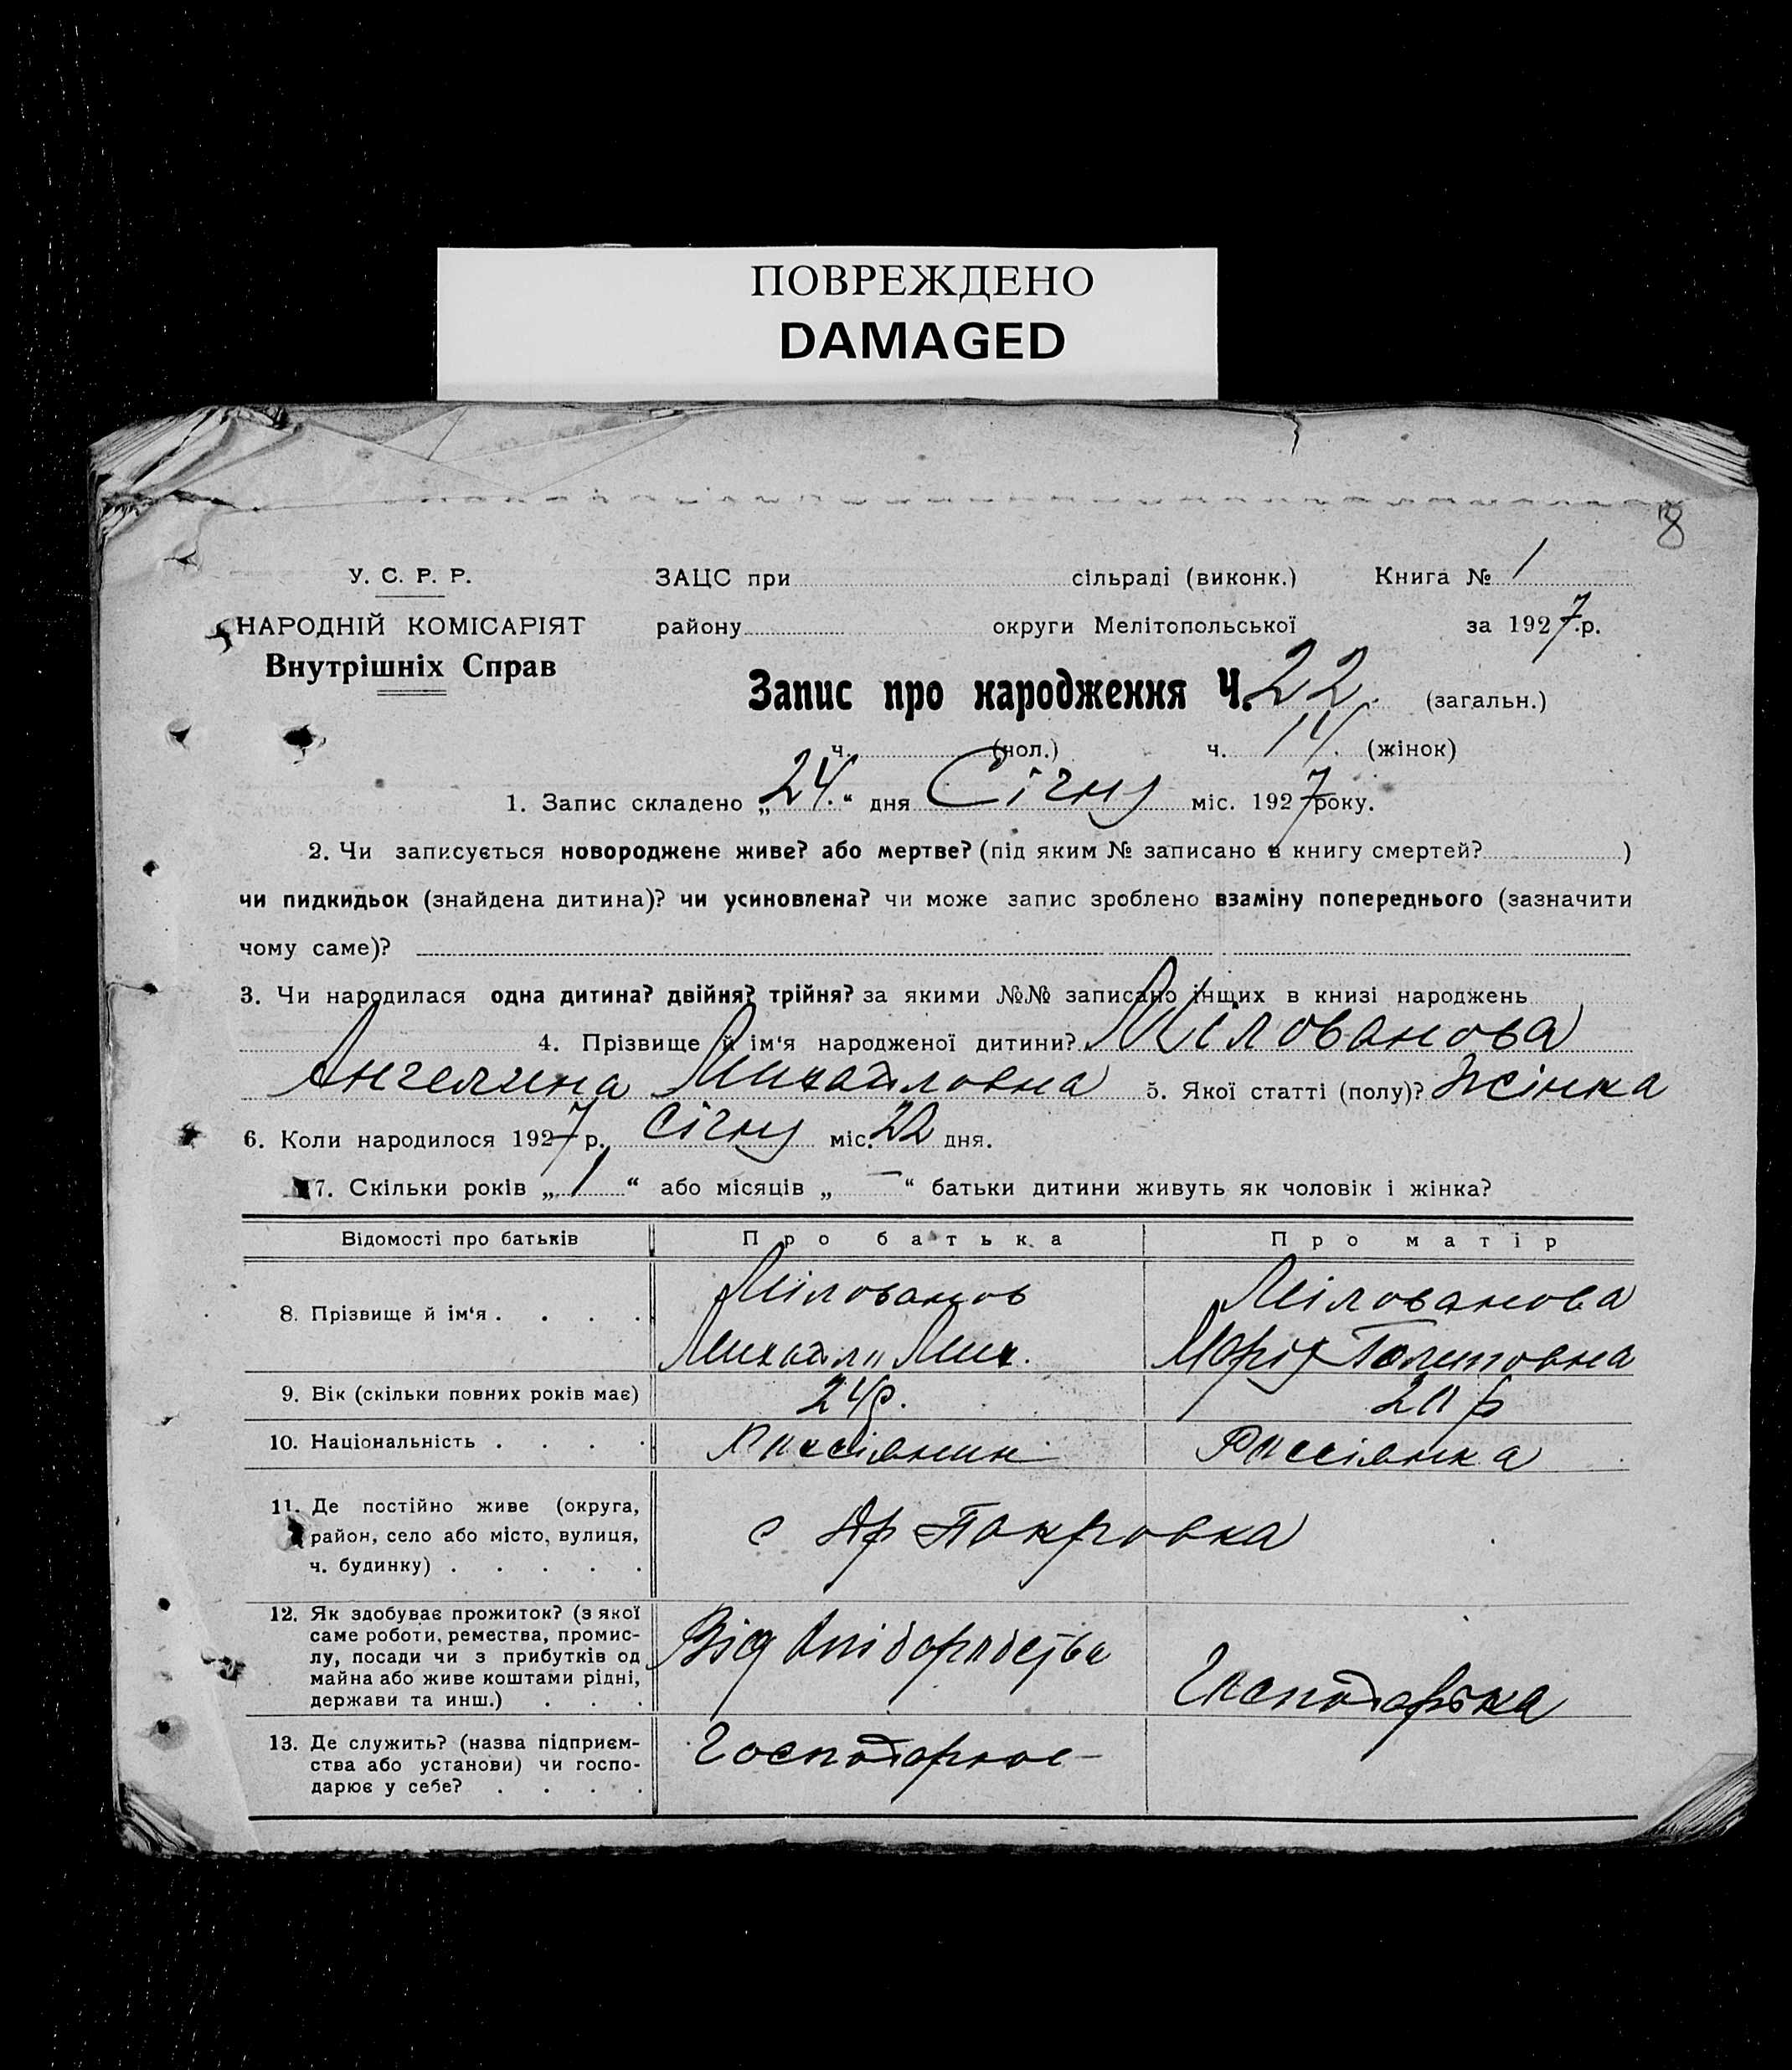 ПОВРЕЖДЕНО
DAMAGED
8
У. С. Р. Р.
ЗАЦС при сільраді (виконк.) Книга № 1
НАРОДНІЙ КОМІСАРІЯТ
району округи Мелітопольської за 1927 р.
Внутрішніх Справ
Запис про народження Ч. 22. (загальн.)
ч. (чол.) ч. 14. (жінок)
1. Запис складено „24.“ дня Січну міс. 1927 року.
2. Чи записується новороджене живе? або мертве? (під яким № записано в книгу смертей? )
чи пидкидьок (знайдена дитина)? чи усиновлена? чи може запис зроблено взаміну попереднього (зазначити
чому саме)?
3. Чи народилася одна дитина? двійня? трійня? за якими №№ записано інщих в книзі народжень
4. Прізвище й ім‘я народженої дитини? Мілованова
Ангелина Михайловна 5. Якої статті (полу)? Жінка
6. Коли народилося 1927 р. Січну міс. 22 дня.
7. Скільки років „ 1 “ або місяців „ — “ батьки дитини живуть як чоловік і жінка?
Відомості про батьків Про батька Про матір
Мілованов Мілованова
8. Прізвище й ім‘я . . . .
Михайло Мих. Марія
9. Вік (скільки повних років має) 24 р. 20 р
10. Національність . . . . Россіянин Россіянка
11. Де постійно живе (округа,
район, село або місто, вулиця, с Покровка
ч. будинку) . . . . .
12. Як здобуває прожиток? (з якої
саме роботи, ремества, промис-
лу, посади чи з прибутків од Від хліборобства
майна або живе коштами рідні, Господарька
держави та инш.) . . .
13. Де служить? (назва підприєм- Господарює
ства або установи) чи госпо-
дарює у себе? . . . .